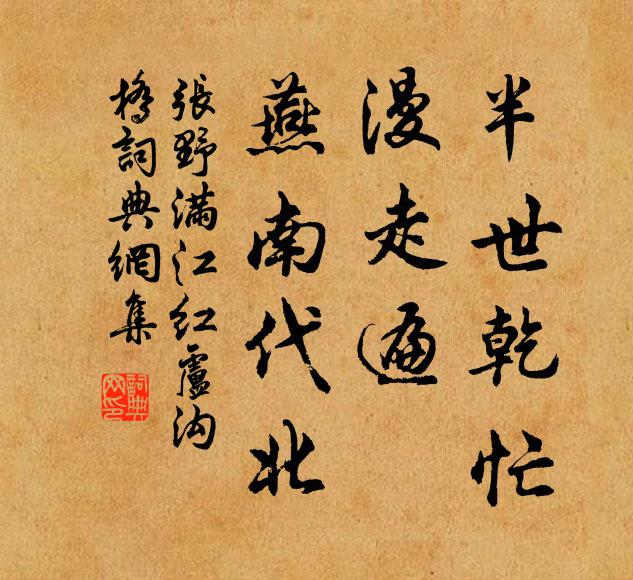 半世乾忙
漫走遍
燕南代北
張野滿江紅盧沟
橋詞典網集
詞典网印